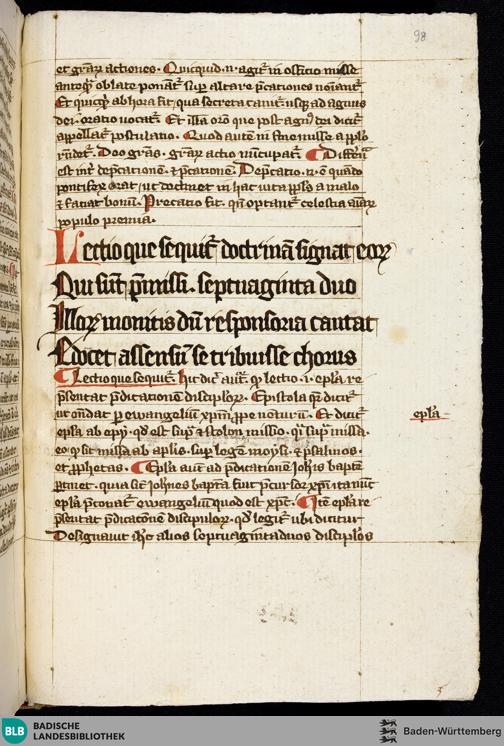 98
et gr̄aꝝ actiones. Quicquid .n. agit᷑ in officio misse
anteqͣ oblate ponāt᷑ sup̱ altare p̱cationes noīant᷑
Et quicqͣ ab hora fit, qua secreta canit᷑ usqꝫ ad agnus
dei. oratio uocat᷑. Et illa oro que post agnꝰ dei dicit᷑
appellat᷑ postulatio. Quod aute in fine misse a pp̱lo
rn̄det᷑. Deo grās. grāꝝ actio nūcupat᷑. ¶ Differn̄a
est int᷑ dep̱cationem. ⁊ p̱cationē. Dep̱catio .n. e quādo
pontifex orat, ut doctinet in hac uita pp̱lo a malo
⁊ faciat bonū. Precatio fit. qn̄ optant᷑ celestia
populo premia.
Lectio que sequit᷑ doctrinā signat eoꝝ
Qui sūt p̄missi. septuaginta duo
Illoꝝ monitis dū responsoria cantat
Edocet assensū se tribuisse chorus
¶ Lectio que sequit᷑. hic dic᷑ auct᷑. qꝫ lectio .i. ep̄la re
p̄sentat p̄dicationē discip̱loꝝ. Epistola qꝫ dicit᷑
ut ondat p̱ ewangeliū xp̄m p̱pe uenturū. Et dicit᷑
ep̄la ab epy. qd̄ est sup̱ ⁊ stolon missio. q̄i sup̱ missa.
eo qꝫ sit missa ab ap̄lis. sup̱ legē moysi. ⁊ psalmos.
et pp̱hetas. ¶ Ep̄la aut᷑ ad p̄dicationē ioh̄is bap̄te
p̱tinet. quia sic᷑ ioh̄nes bap̄ta fuit p̄cursor xp̄i ita nūc
ep̄la p̄conat᷑ ewangeliū quod est xp̄c. ¶ Itē ep̄la re
p̄sentat p̄dicatōnē discipuloꝝ. qd̄ legit᷑ ubi dicitur
Designauit ih̄c alios septuagintaduos discip̱los
ep̄la.
BLB
BADISCHE
LANDESBIBLIOTHEK
Baden-Württemberg